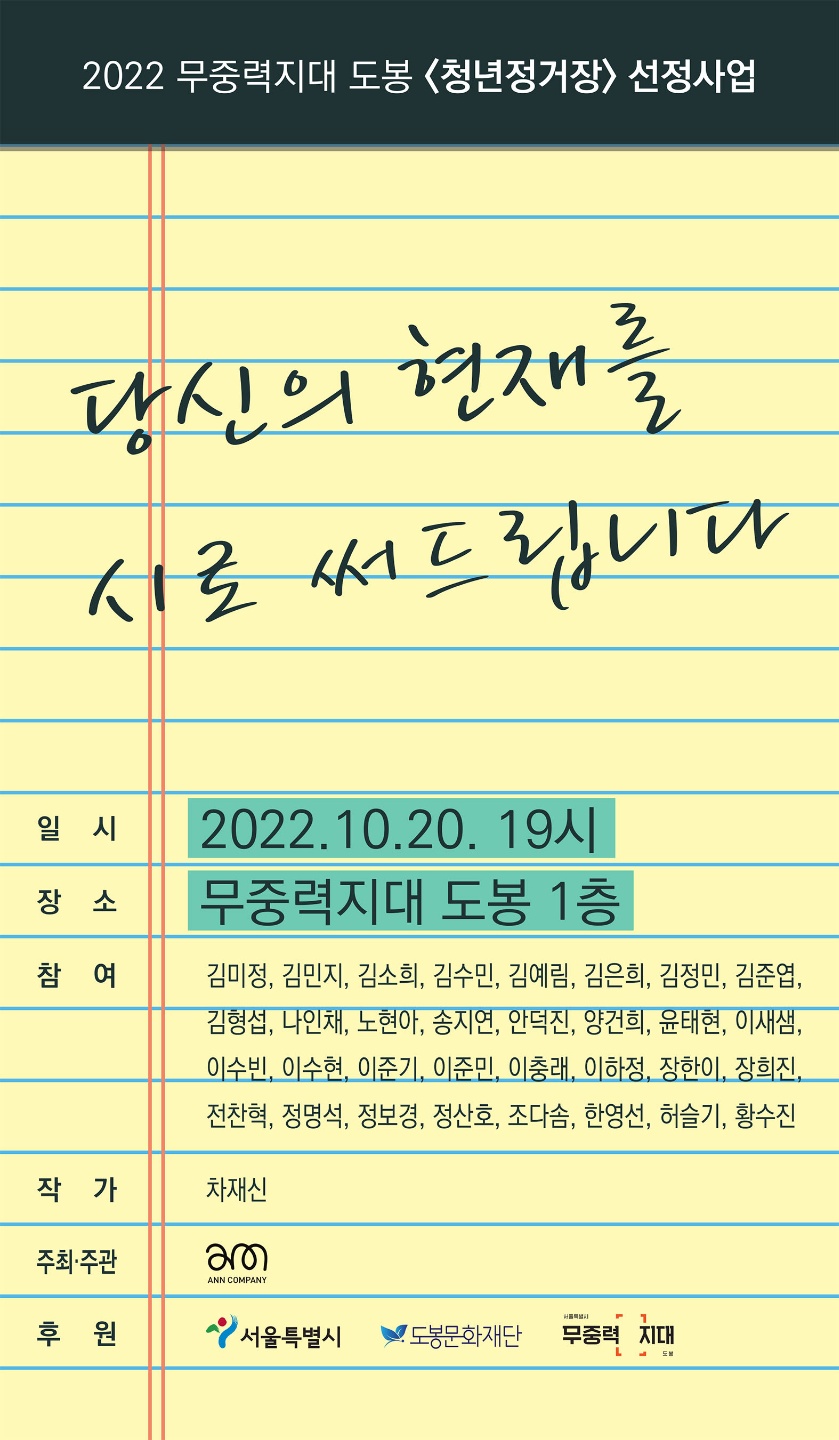 2022 무중력지대 도봉 〈청년정거장〉 선정사업
당신의 현재를
시로 써드립니다
일 시 2022.10.20. 19시
장 소 무중력지대 도봉 1층
참 여 김미정, 김민지, 김소희, 김수민, 김예림, 김은희, 김정민, 김준엽,
김형섭, 나인채, 노현아, 송지연, 안덕진, 양건희, 윤태현, 이새샘,
이수빈, 이수현, 이준기, 이준민, 이충래, 이하정, 장한이, 장희진,
전찬혁, 정명석, 정보경, 정산호, 조다솜, 한영선, 허슬기, 황수진
작 가 차재신
주최·주관 am
ANN COMPANY
후 원 서울특별시 도봉문화재단 서울특별시 무중력 지대 도봉